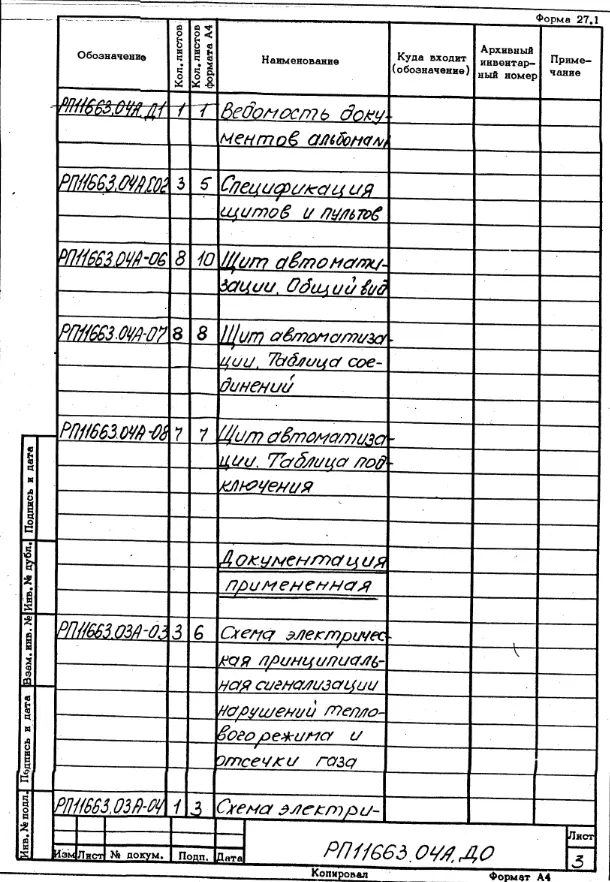 Форма 27.1
Обозначение
Кол. листов
Кол. листов формата А4
Наименование
Куда входит
(обозначение)
Архивный
инвентар-
ный номер
Приме-
чание
РП11663.04А.Д1 1 1 Ведомость доку-
ментов альбома
РП11663.04А.СО2 3 5 Спецификация
щитов и пультов
РП11663.04А-06 8 10 Щит автомати-
зации. Общий вид
РП11663.04А-07 8 8 Щит автоматиза-
ции. Таблица сое-
динений
РП11663.04А-08 7 7 Щит автоматиза-
ции. Таблица под-
ключения
Документация
примененная
РП11663.03А-03 3 6 Схема электричес-
кая принципиаль-
ная сигнализации
нарушений тепло-
вого режима и
отсечки газа
РП11663.03А-04 1 3 Схема электри-
Инв. № подл.
Подпись и дата
Взам. инв. №
Инв. № дубл.
Подпись и дата
Изм Лист № докум. Подп. Дата
РП11663.04А.ДО
Лист
3
Копировал
Формат А4